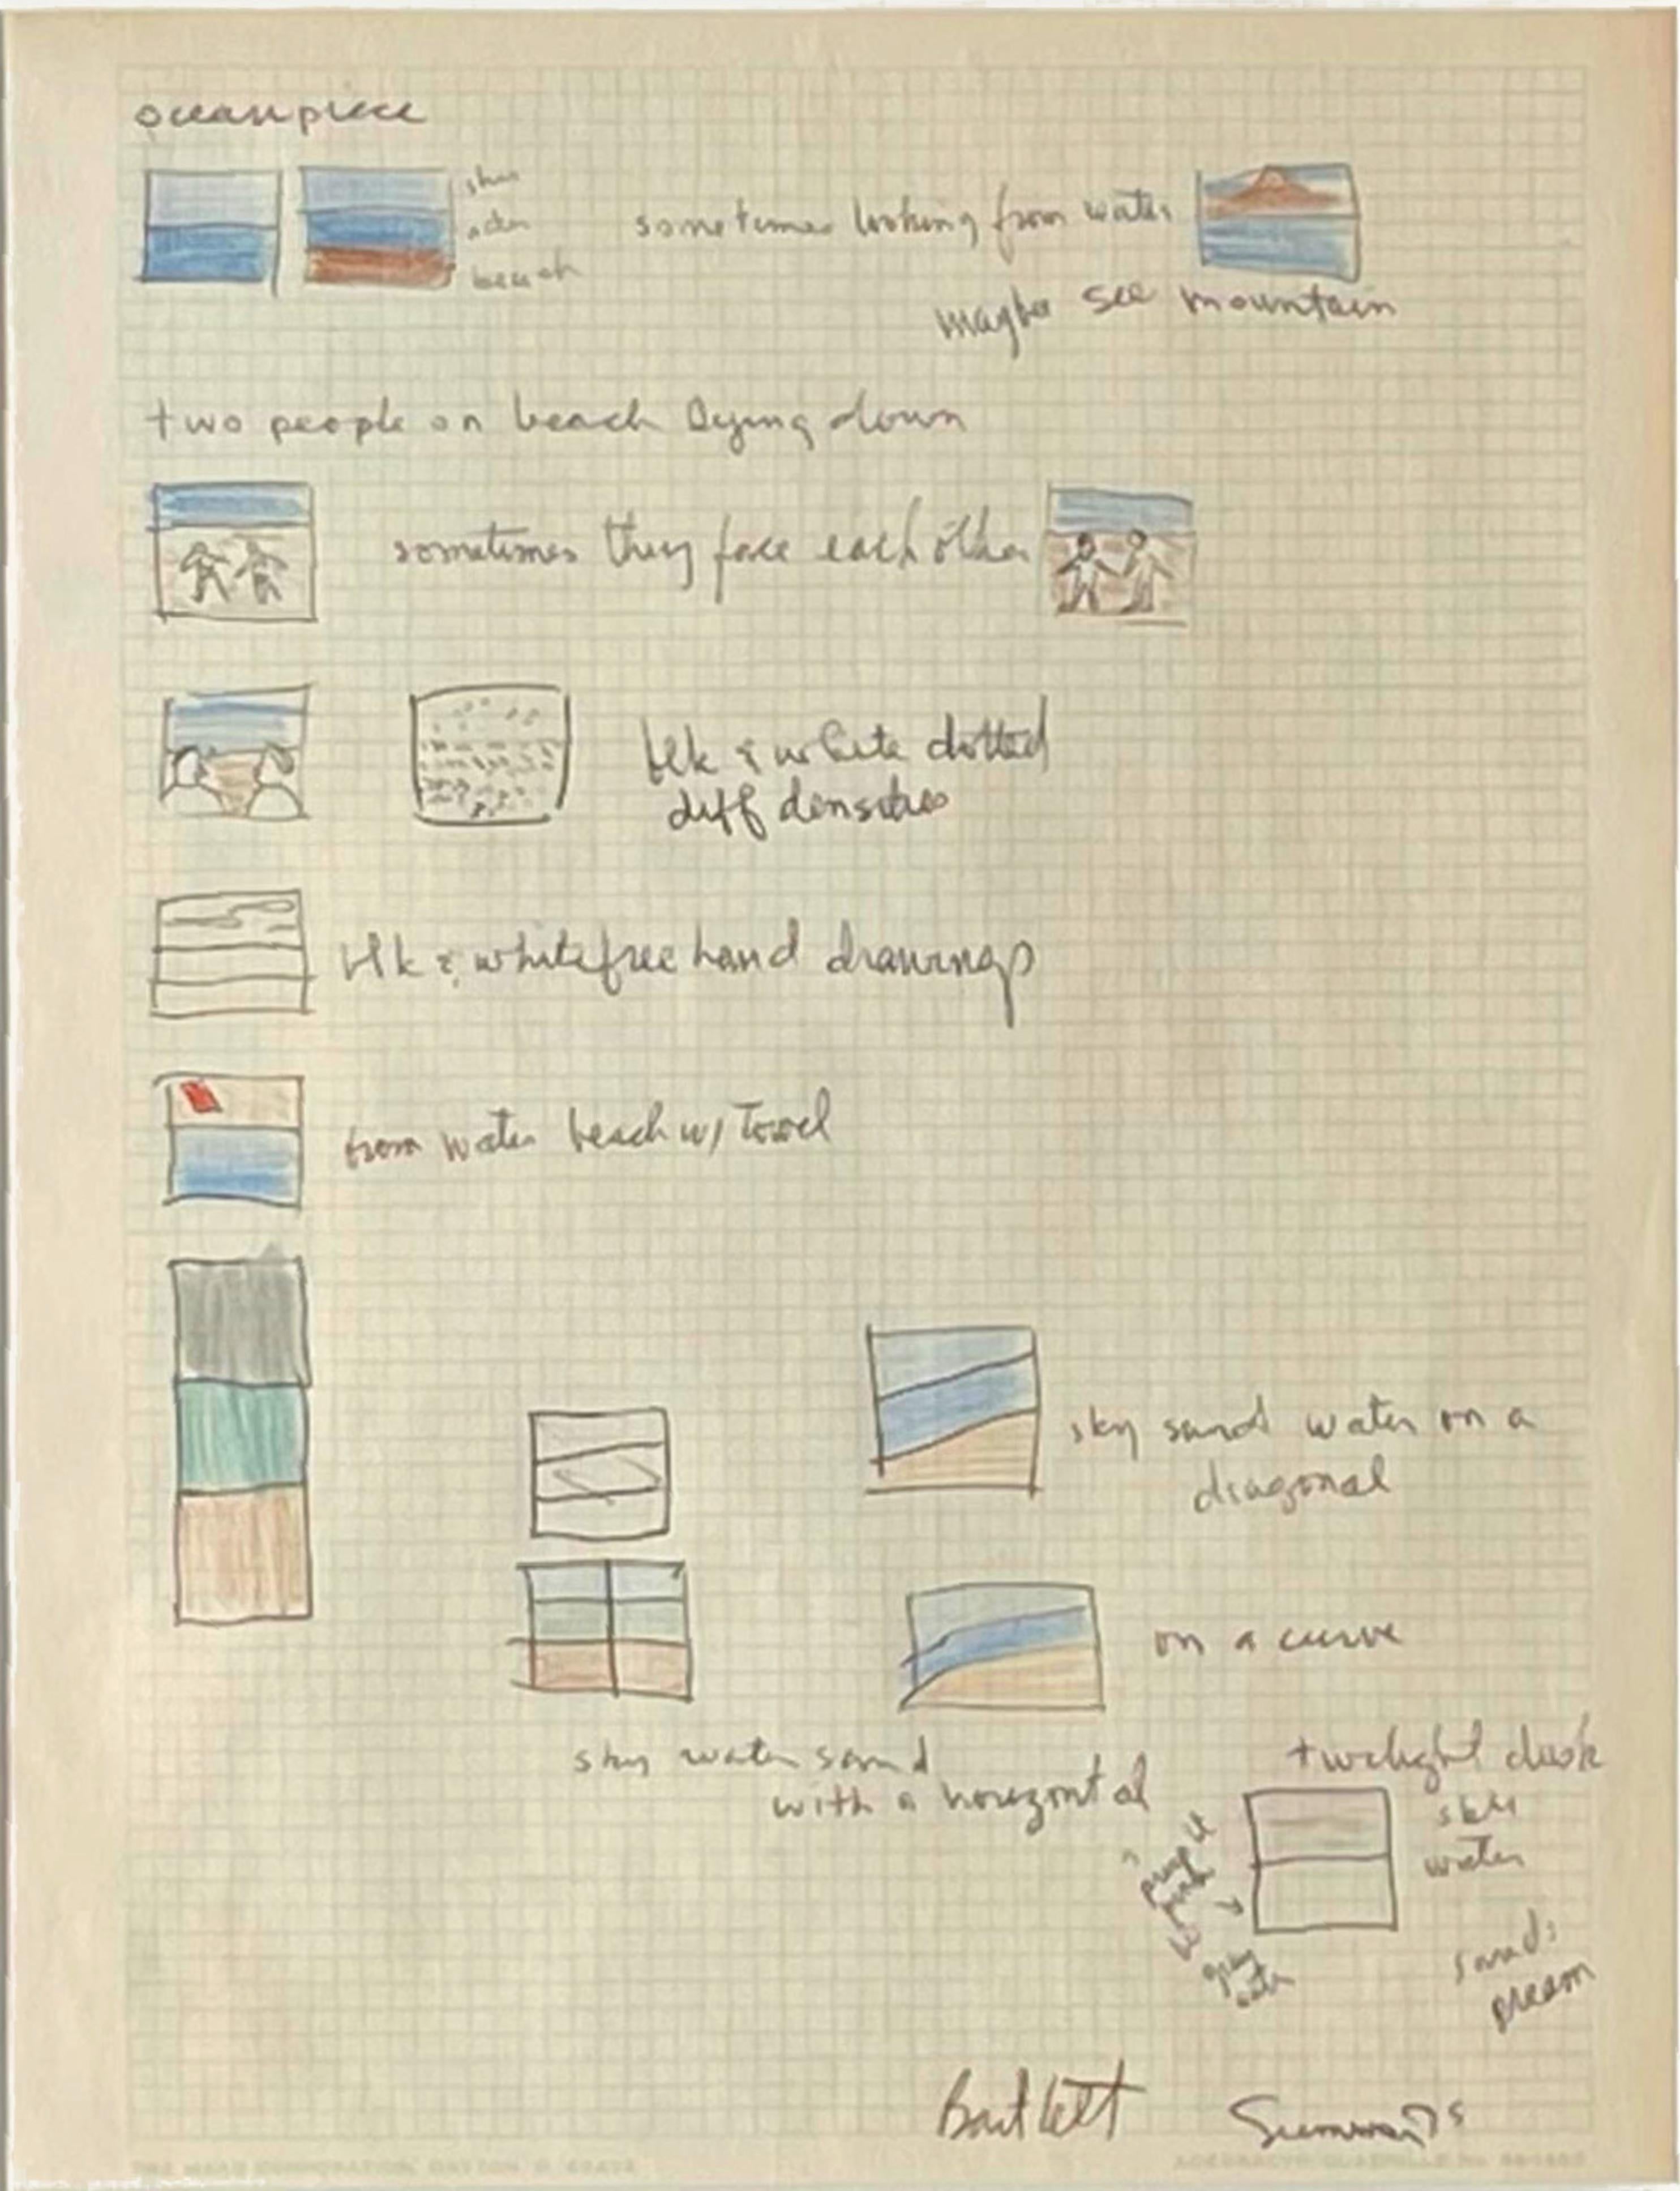 ocean piece
sky
water
beach
sometimes looking from water
maybe see mountain
two people on beach lying down
sometimes they face each other
blk & white dotted
diff densities
blk & white free hand drawings
from water beach w/ towel
sky sand water on a
diagonal
on a curve
sky water sand
with a horizontal
twilight dusk
sky
water
pink
grey
water
sand:
Bartlett
Summer 75